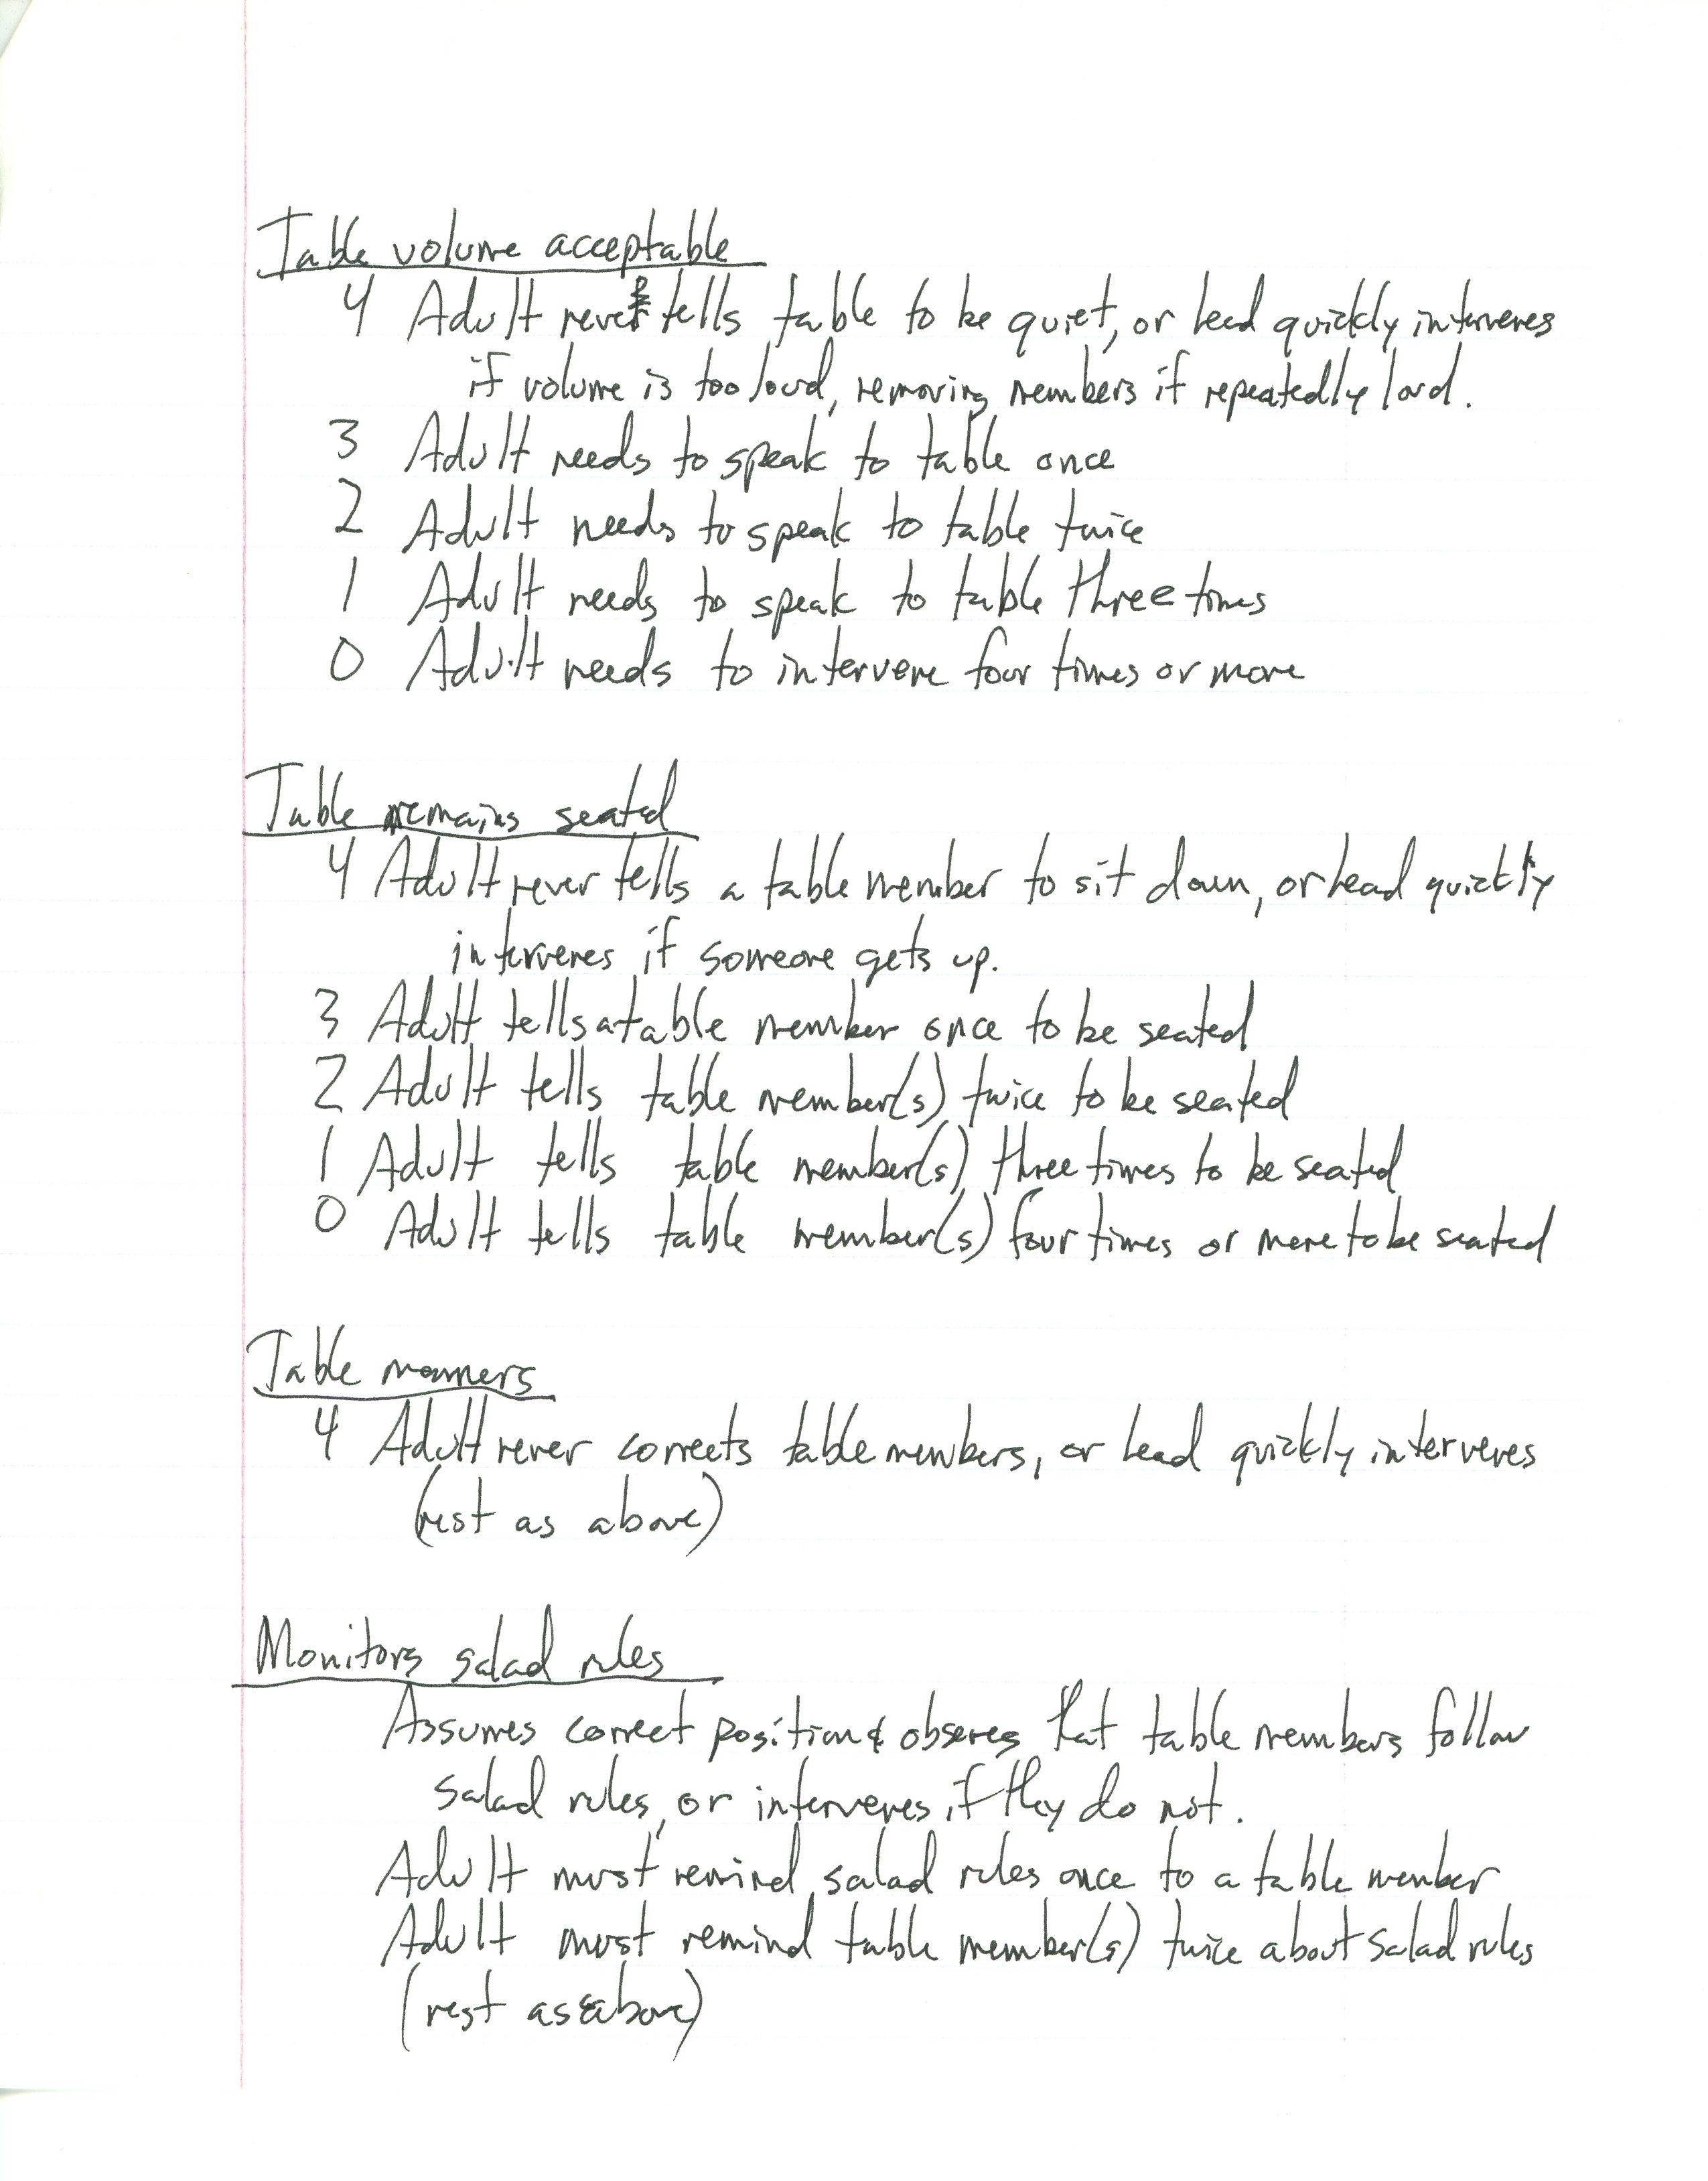 Table volume acceptable
4 Adult never tells table to be quiet, or head quickly intervenes
if volume is too loud, removing members if repeatedly loud.
3 Adult needs to speak to table once
2 Adult needs to speak to table twice
1 Adult needs to speak to table three times
0 Adult needs to intervene four times or more
Table remains seated
4 Adult never tells a table member to sit down, or head quickly
intervenes if someone gets up.
3 Adult tells a table member once to be seated
2 Adult tells table member(s) twice to be seated
1 Adult tells table member(s) three times to be seated
0 Adult tells table member(s) four times or more to be seated
Table manners
4 Adult never corrects table members, or head quickly intervenes
(rest as above)
Monitors salad rules
Assumes correct position & observes that table members follow
salad rules, or intervenes if they do not.
Adult must remind salad rules once to a table member
Adult must remind table member(s) twice about salad rules
(rest as above)